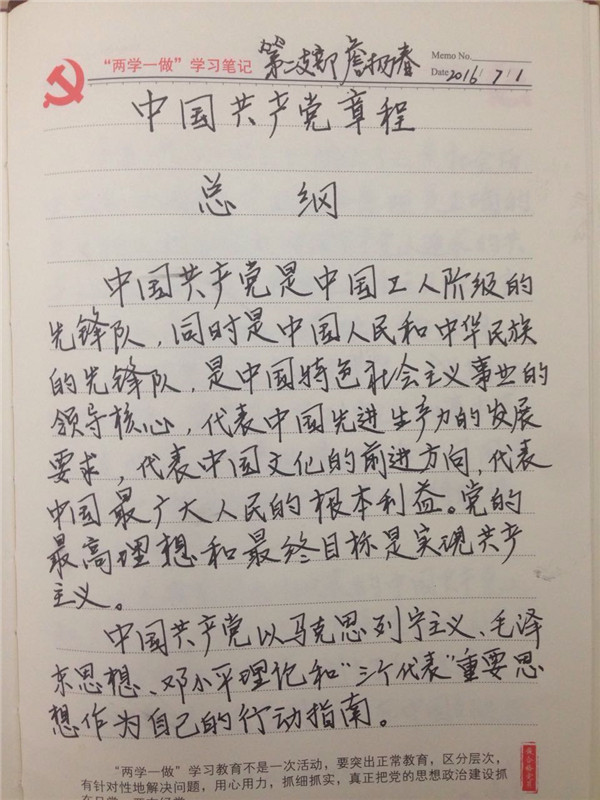 “两学一做”学习笔记 第二支部 詹扬春 Memo No.
Date 2016/ 7/1
中国共产党章程
总 纲
中国共产党是中国工人阶级的
先锋队，同时是中国人民和中华民族
的先锋队，是中国特色社会主义事业的
领导核心，代表中国先进生产力的发展
要求，代表中国文化的前进方向，代表
中国最广大人民的根本利益。党的
最高理想和最终目标是实现共产
主义。
中国共产党以马克思列宁主义、毛泽
东思想、邓小平理论和“三个代表”重要思
想作为自己的行动指南。
“两学一做”学习教育不是一次活动，要突出正常教育，区分层次，
有针对性地解决问题，用心用力，抓细抓实，真正把党的思想政治建设抓